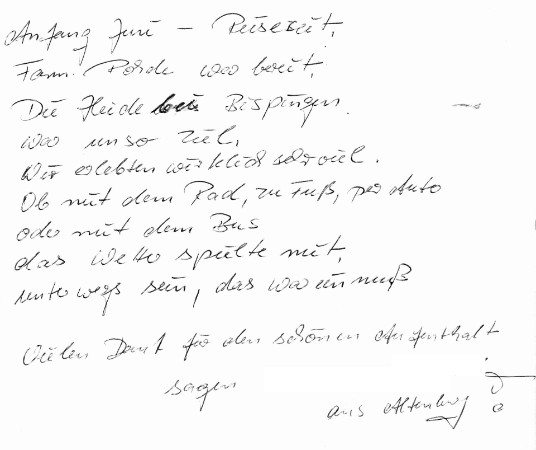 Anfang Juni – Reisezeit,
Fam. war bereit,
Die Heide bei Bispingen
war unser Ziel,
Wir erlebten wirklich sehr viel.
Ob mit dem Rad, zu Fuß, per Auto
oder mit dem Bus
das Wetter spielte mit,
unterwegs sein, das war ein muß
Vielen Dank für den schönen Aufenthalt
sagen
aus Altenburg